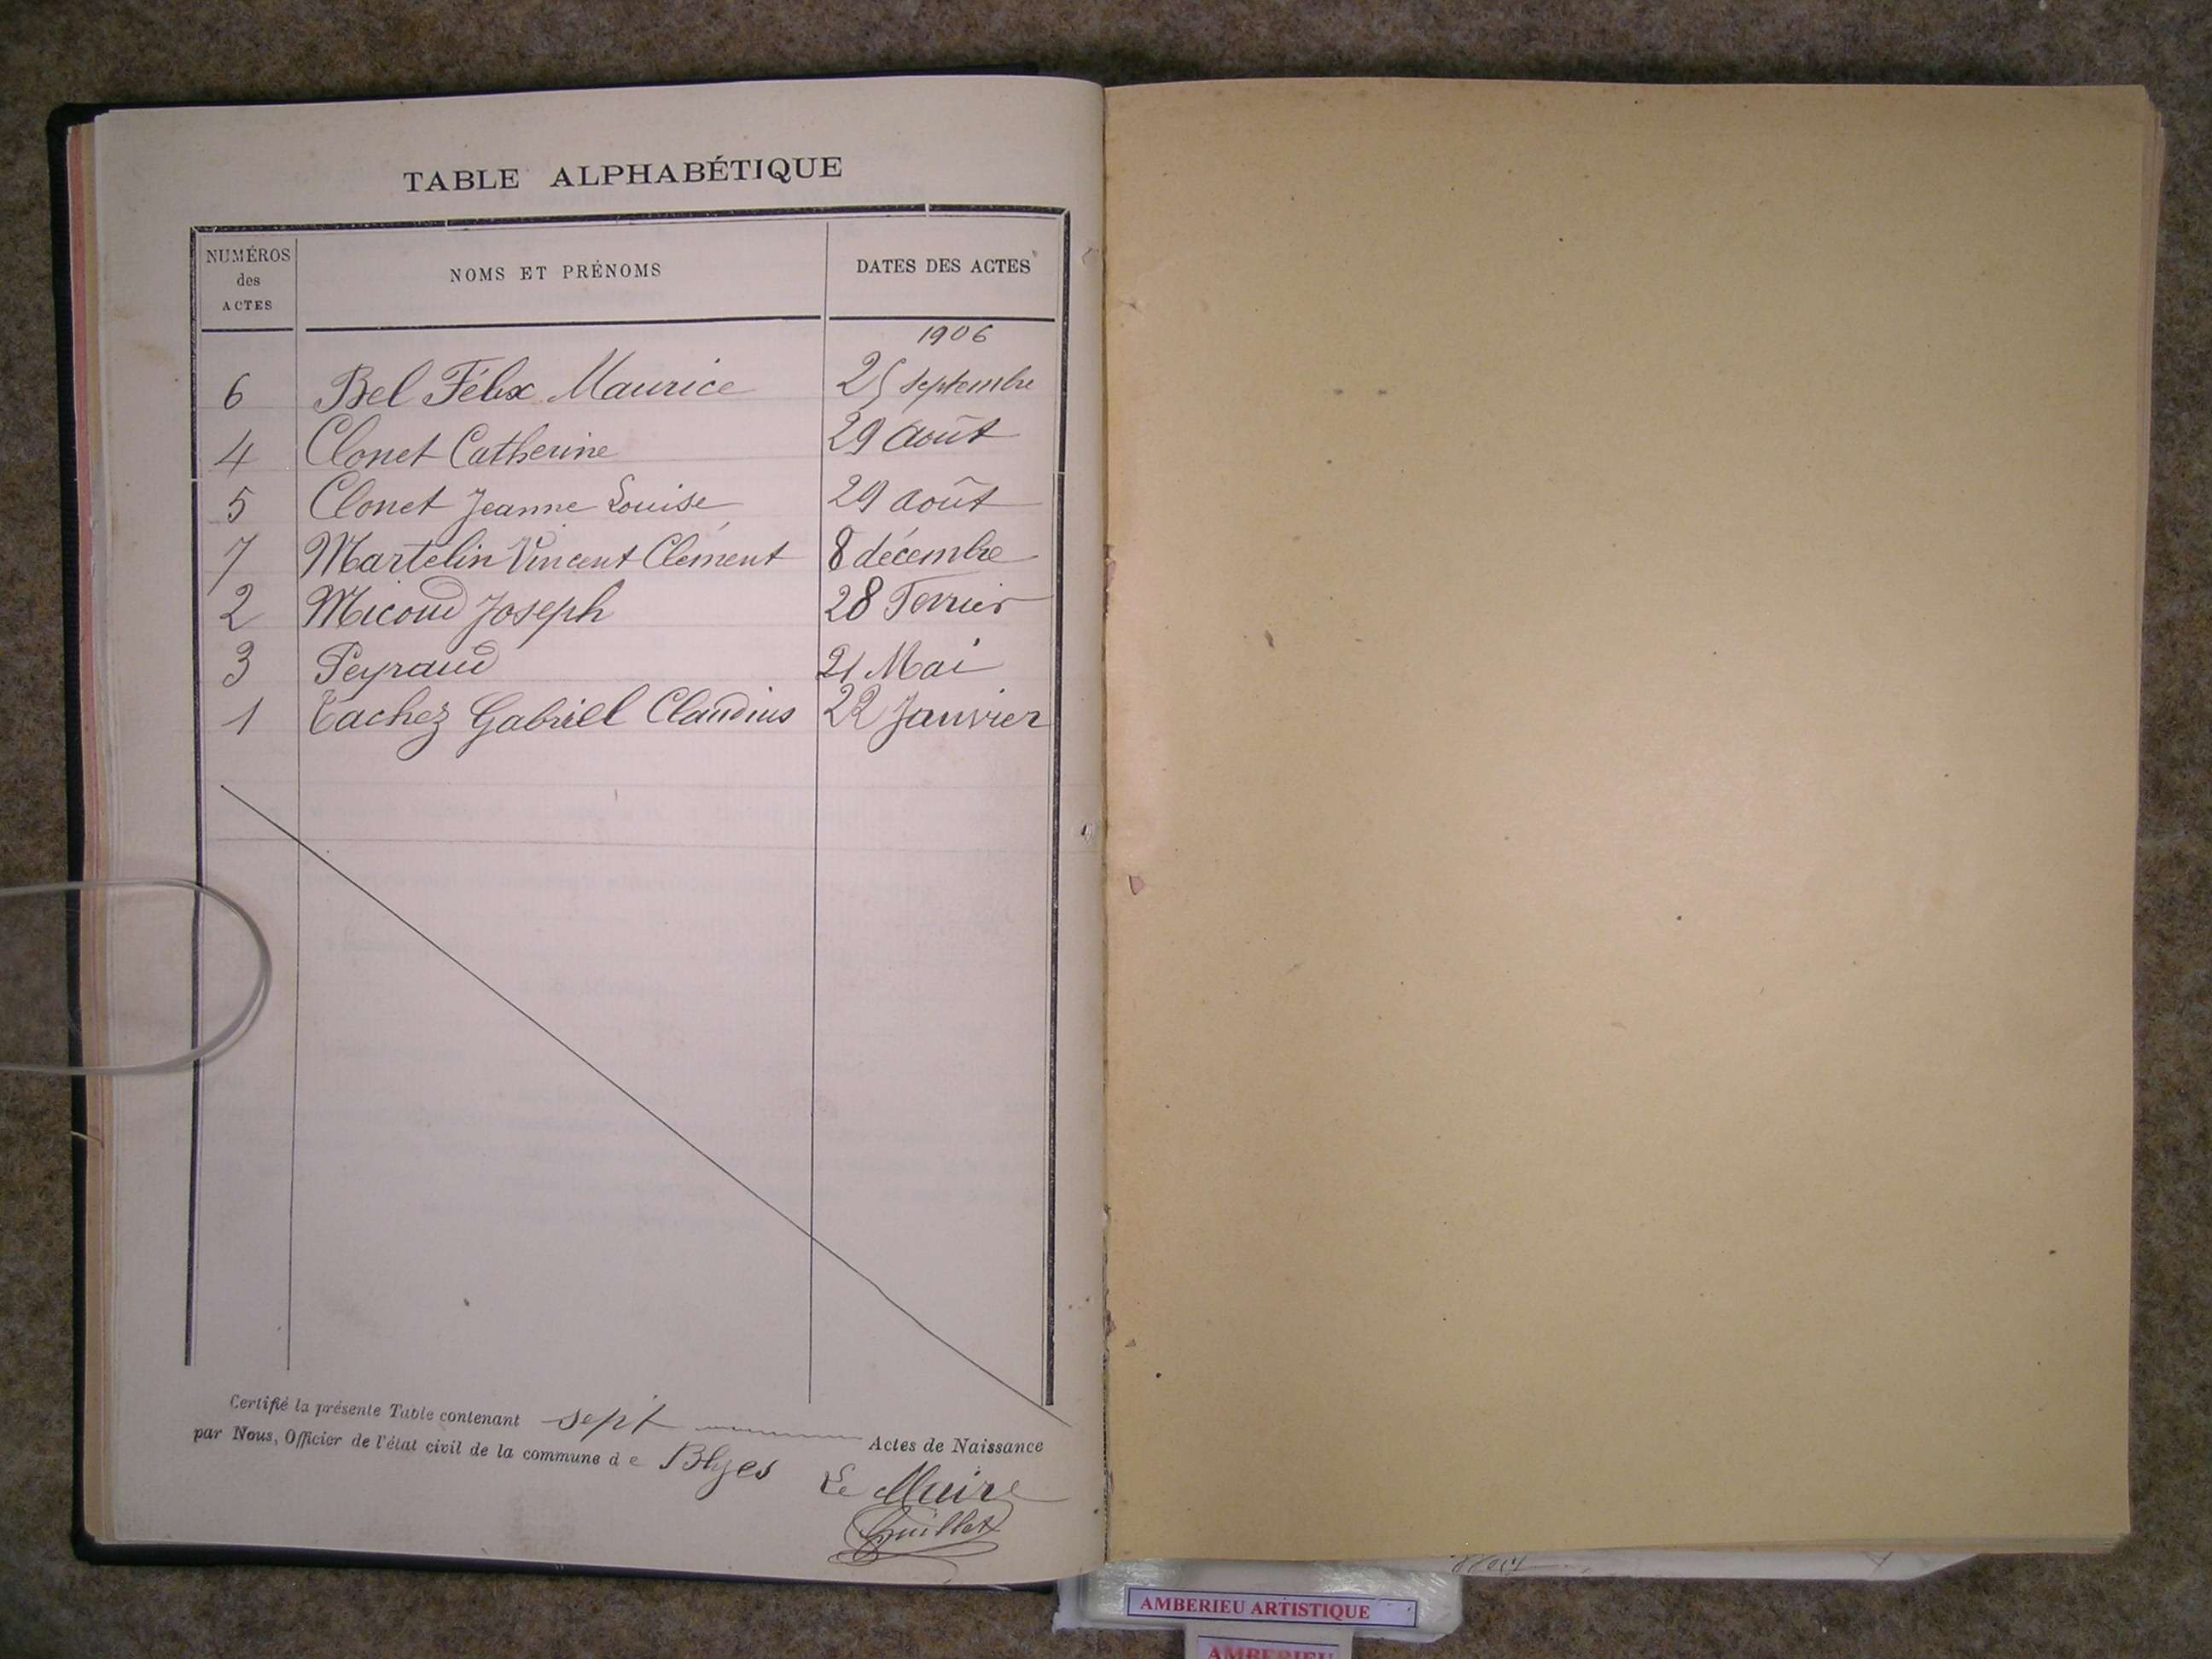 TABLE ALPHABÉTIQUE
NUMÉROS des ACTES NOMS ET PRÉNOMS DATES DES ACTES
1906
6 Bel Félix Maurice 25 septembre
4 Clonet Catherine 29 août
5 Clonet Jeanne Louise 29 août
7 Martelin Vincent Clément 8 décembre
2 Micoud Joseph 28 Fevrier
3 Peyraud 21 Mai
1 Tachez Gabriel Claudius 22 Janvier
Certifié la présente Table contenant sept Actes de Naissance
par Nous, Officier de l'état civil de la commune de Blyes
Le Maire
Guillet
AMBERIEU ARTISTIQUE
AMBERIEU